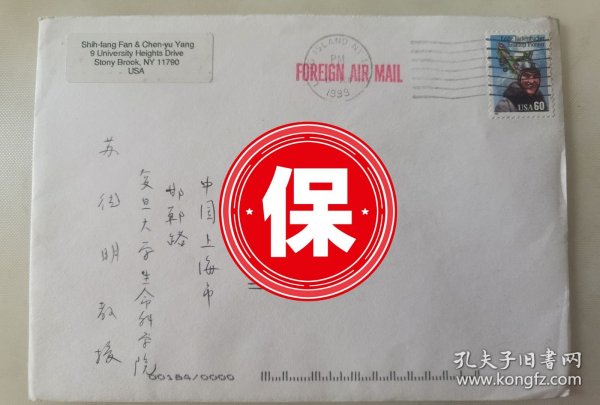 Shih-fang Fan & Chen-yu Yang
9 University Heights Drive
Stony Brook, NY 11790
USA
ISLAND NY
PM
1999
FOREIGN AIR MAIL
USA 60
保
中国上海市
邯郸路
复旦大学生命科学院
苏德明教授
00184/0000
孔夫子旧书网
www.kongfz.com